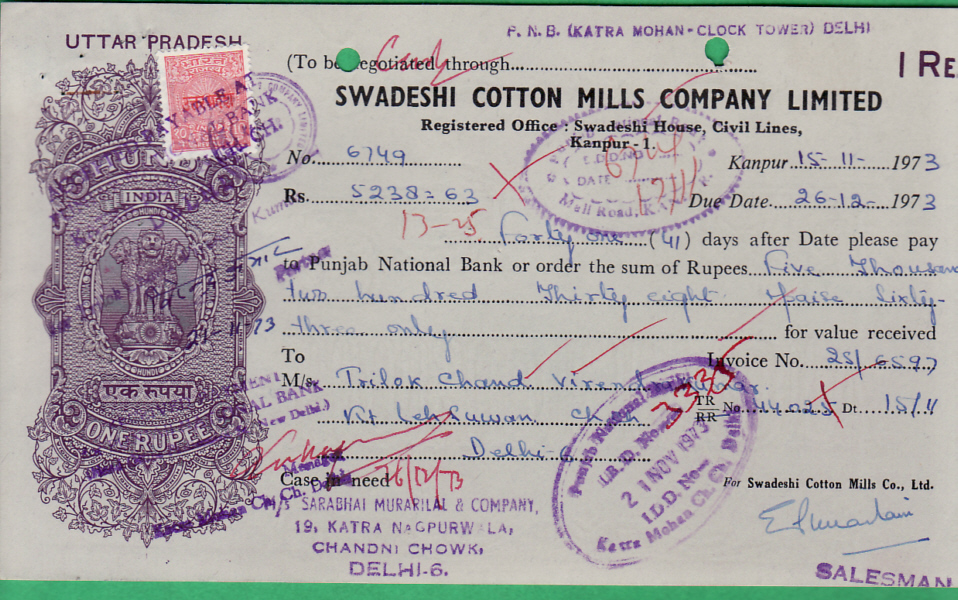 P. N. B. (KATRA MOHAN-CLOCK TOWER) DELHI
UTTAR PRADESH
(To be negotiated through
1 RE
SWADESHI COTTON MILLS COMPANY LIMITED
Registered Office : Swadeshi House, Civil Lines,
Kanpur-1.
PAYABLE AT
HUNDI
INDIA
No. 6749
Kanpur 15-11- 1973
Rs. 5238=63
Due Date 26-12- 1973
D.D.NO
DATE
Mall Road,
13-25
forty one (41) days after Date please pay
to Punjab National Bank or order the sum of Rupees Five Thousand
two hundred Thirty eight paise Sixty-
three only for value received
HUNDI
To
Invoice No. 25/6597
M/s. Trilok Chand Virendra Kumar
3335
TR
RR No. 14025 Dt. 15/11
Delhi-6
एक रुपया
ONE RUPEE
New Delhi.)
Punjab National
21 NOV 1973
I.D. No.
Katra Mohan Ch. Delhi
Case in need 26/12/73
For Swadeshi Cotton Mills Co., Ltd.
M/s SARABHAI MURARILAL & COMPANY,
19, KATRA NAGPURWALA,
CHANDNI CHOWK,
DELHI-6.
SALESMAN